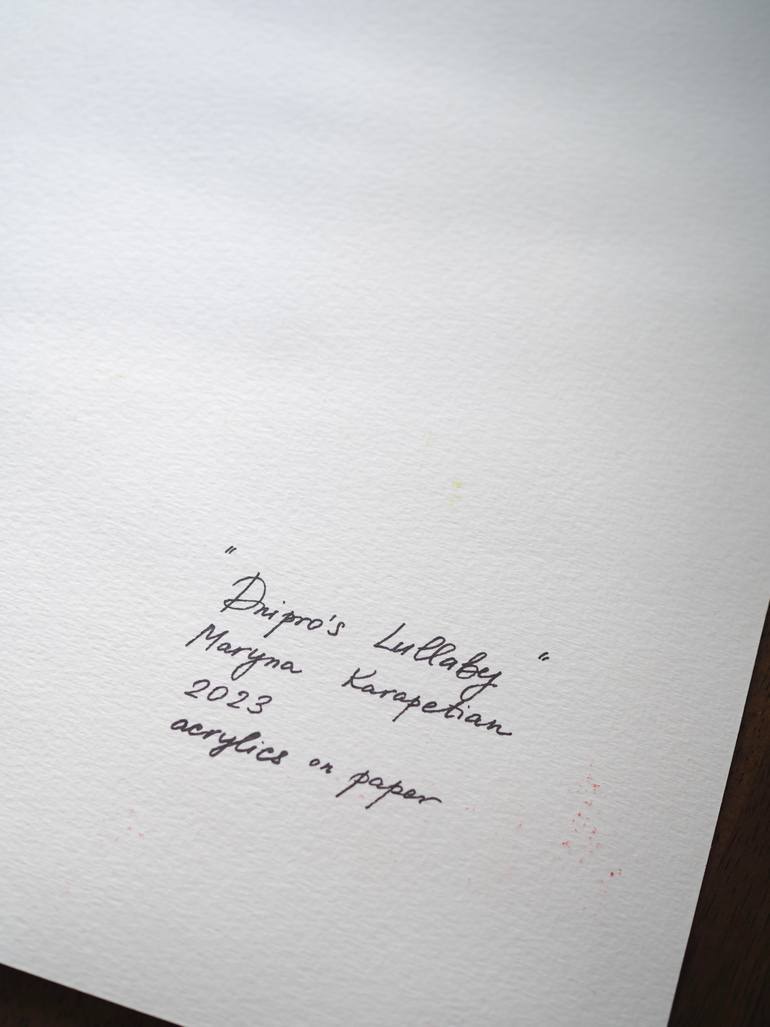 "Dnipro's Lullaby"
Maryna Karapetian
2023
acrylics on paper